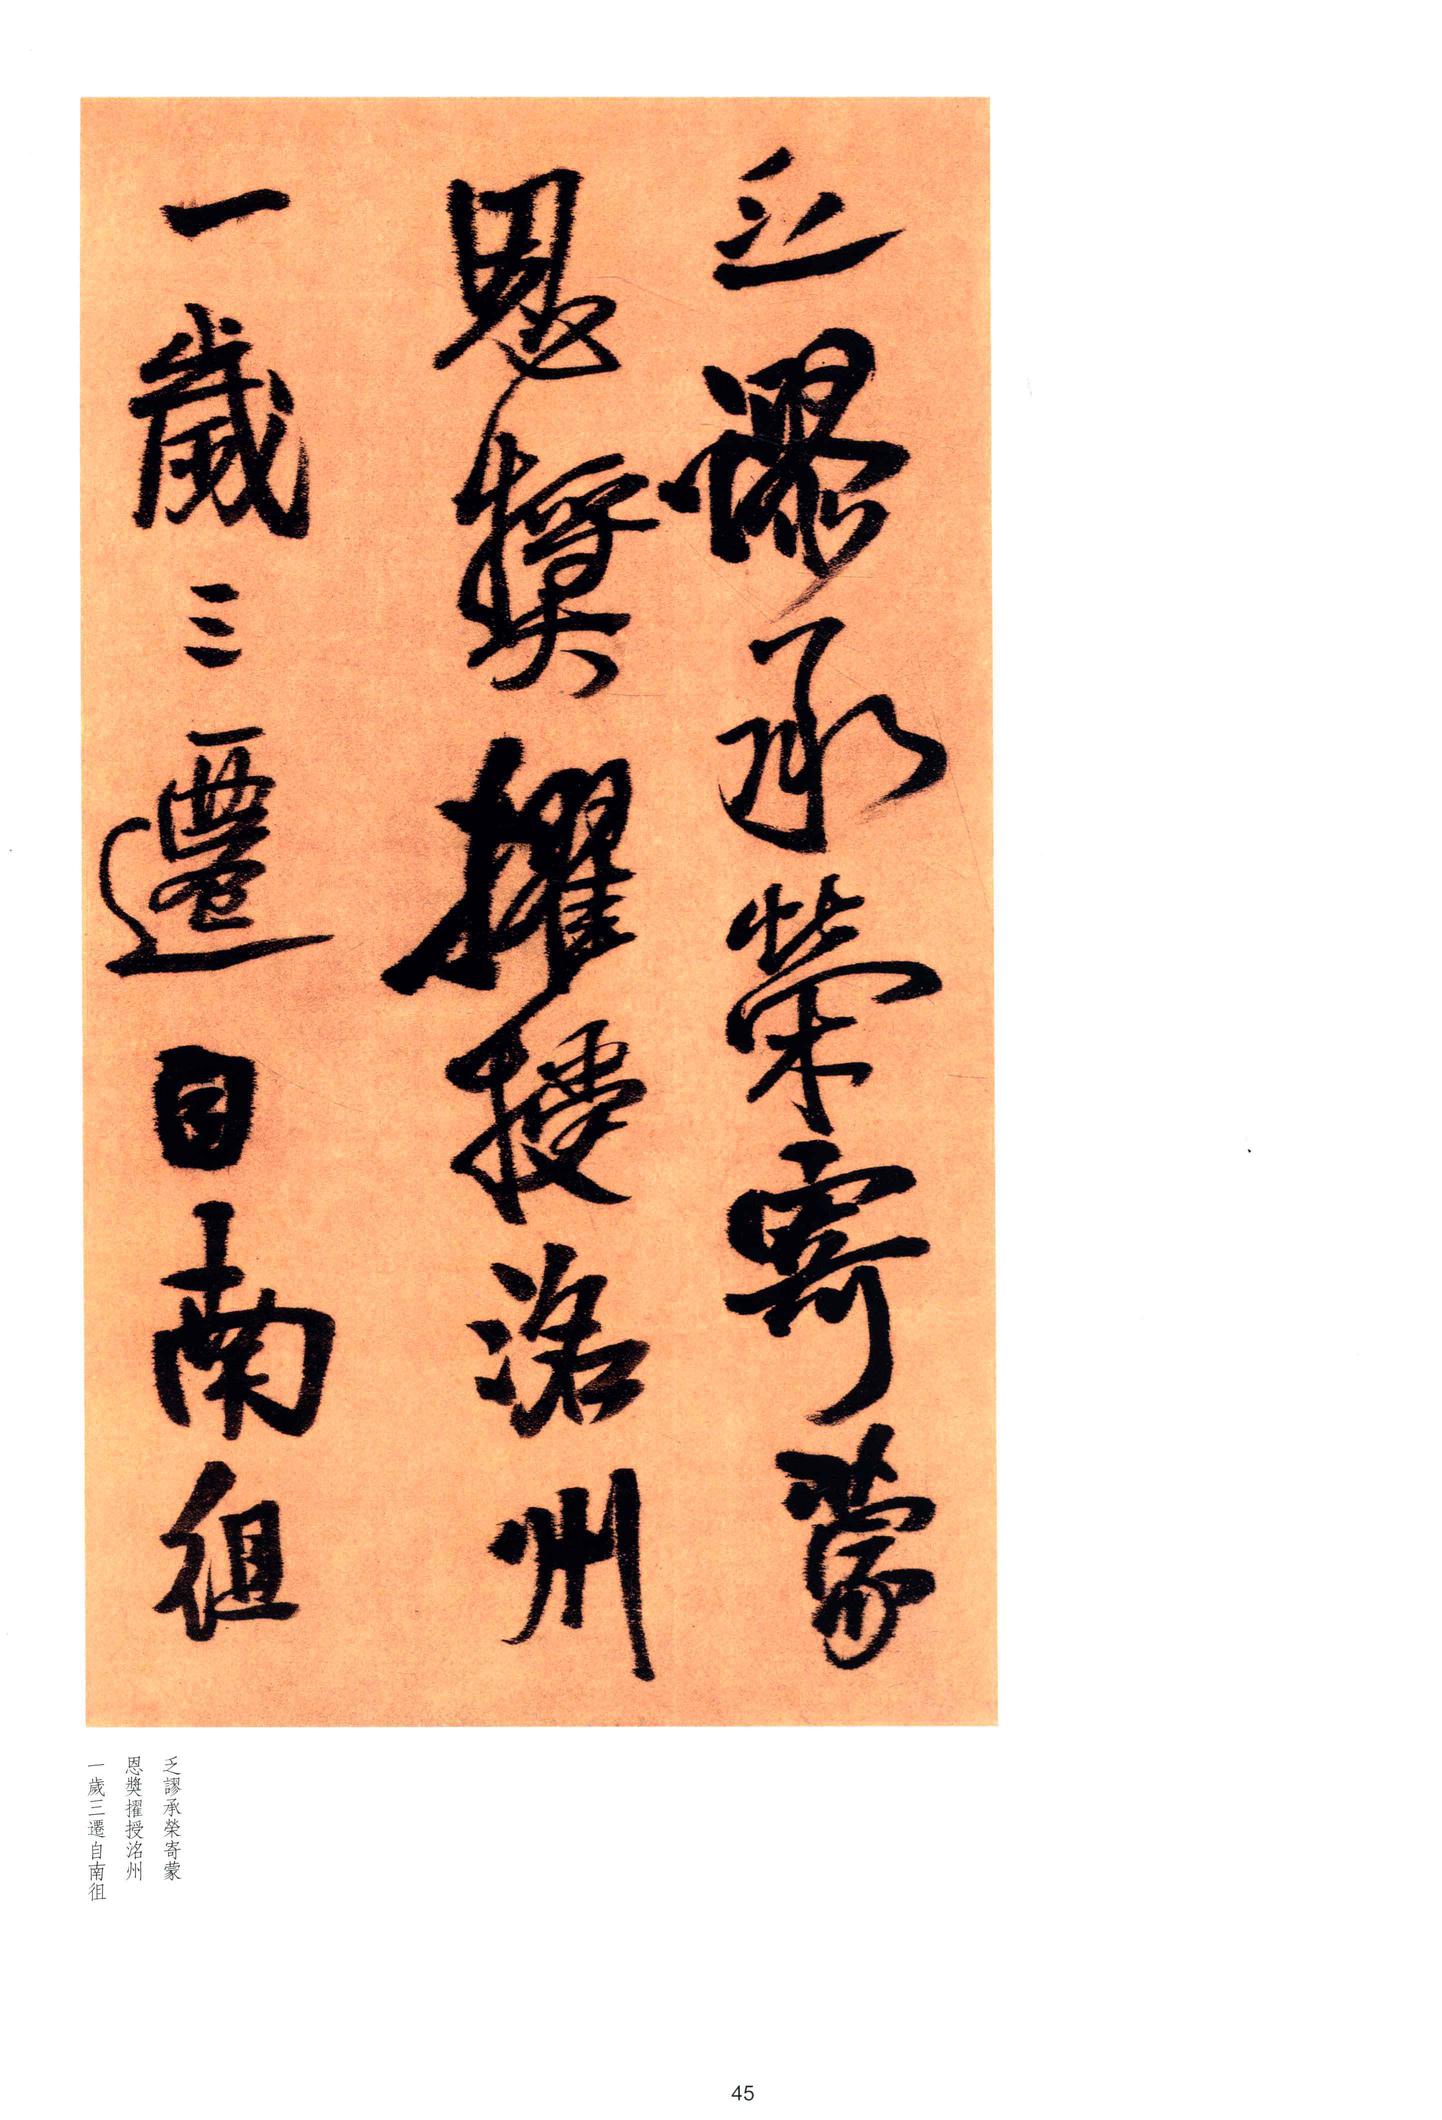 乏謬承榮寄蒙
恩獎擢授洺州
一歲三遷自南徂
乏謬承榮寄蒙
恩獎擢授洺州
一歲三遷自南徂
45